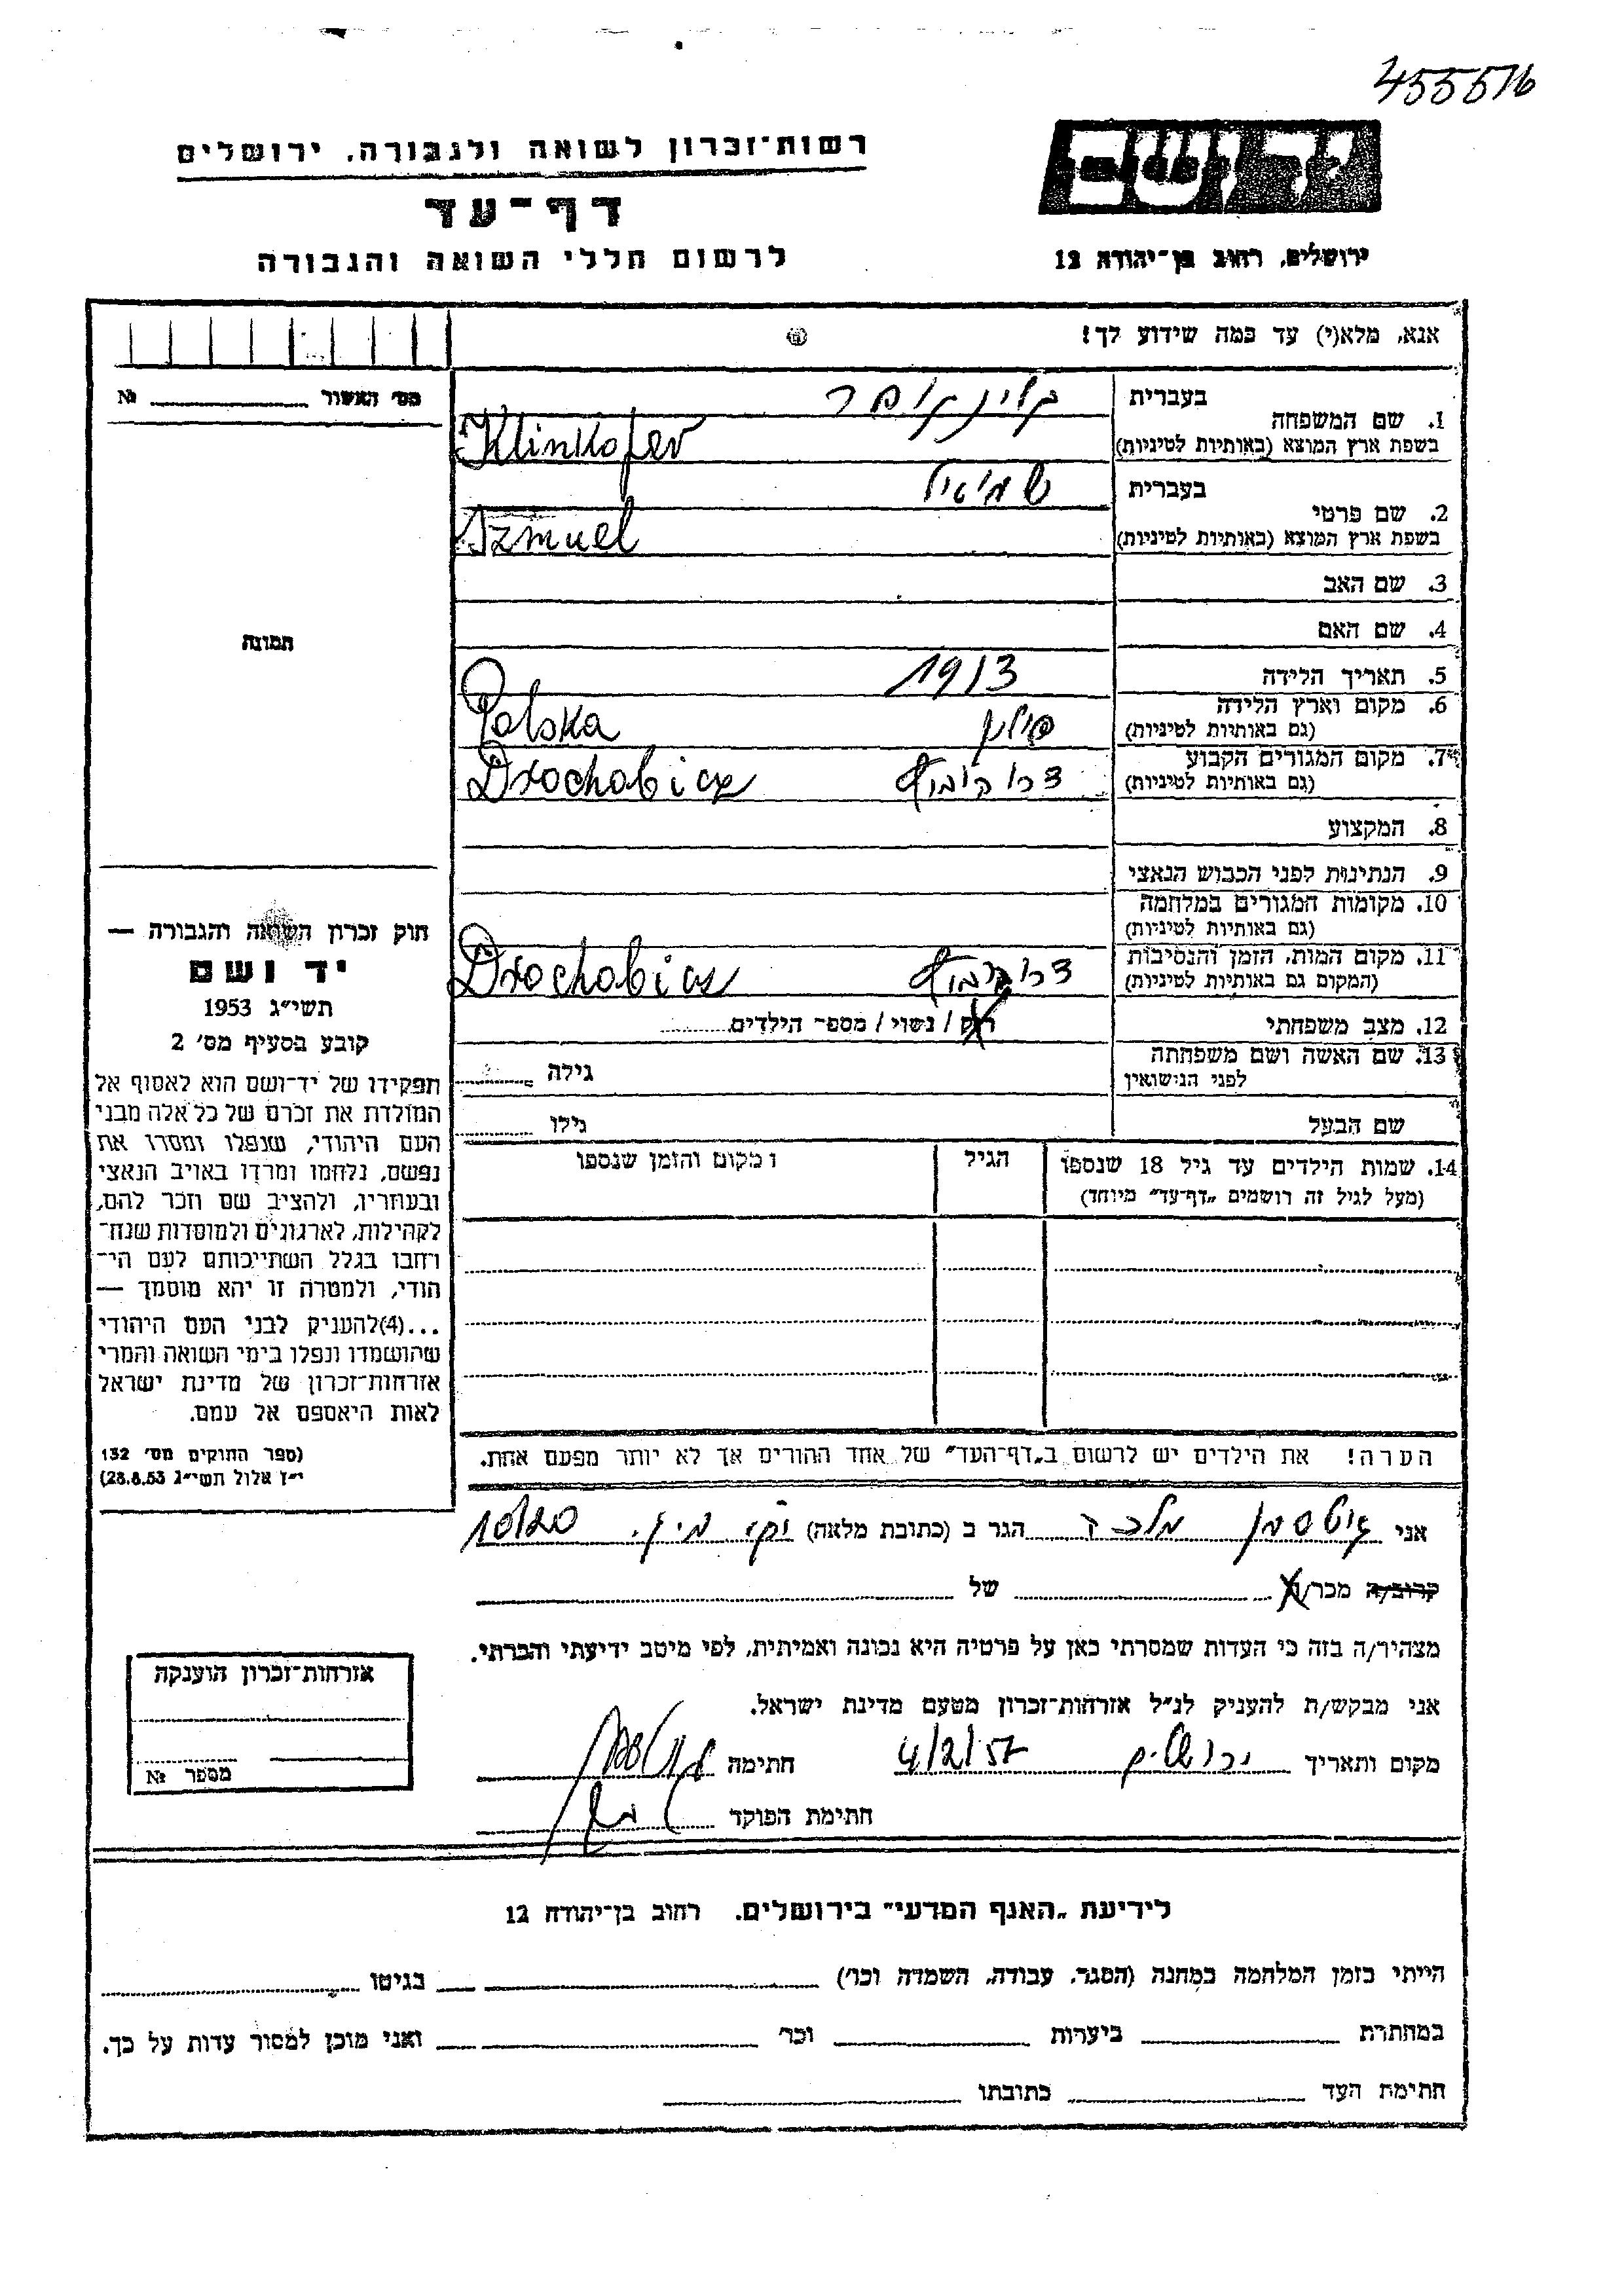 455576
רשות־זכרון לשואה ולגבורה, ירושלים
דף־עד
לרשום חללי השואה והגבורה
יד ושם
ירושלים, רחוב בן־יהודה 12
אנא, מלא(י) עד כמה שידוע לך!
מס׳ האשור №
בעברית
1. שם המשפחה
קלינקופר
בשפת ארץ המוצא (באותיות לטיניות)
Klinkofer
בעברית
2. שם פרטי
שמואל
בשפת ארץ המוצא (באותיות לטיניות)
Szmuel
3. שם האב
4. שם האם
תמונה
5. תאריך הלידה 1913
6. מקום וארץ הלידה
(גם באותיות לטיניות)
פולין Polska
7. מקום המגורים הקבוע
(גם באותיות לטיניות)
דרוהוביץ Drochobicz
8. המקצוע
9. הנתינות לפני הכבוש הנאצי
10. מקומות המגורים במלחמה
(גם באותיות לטיניות)
11. מקום המות, הזמן והנסיבות
(המקום גם באותיות לטיניות)
דרוהוביץ Drochobicz
12. מצב משפחתי רוק / נשוי / מספר הילדים
13. שם האשה ושם משפחתה
לפני הנישואין
גילה
שם הבעל גילו
14. שמות הילדים עד גיל 18 שנספו
(מעל לגיל זה רושמים „דף־עד״ מיוחד)
הגיל
מקום והזמן שנספו
חוק זכרון השואה והגבורה —
יד ושם
תשי״ג 1953
קובע בסעיף מס׳ 2
תפקידו של יד־ושם הוא לאסוף אל
המולדת את זכרם של כל אלה מבני
העם היהודי, שנפלו ומסרו את
נפשם, נלחמו ומרדו באויב הנאצי
ובעוזריו, ולהציב שם וזכר להם,
לקהילות, לארגונים ולמוסדות שנח־
רחבו בגלל השתייכותם לעם הי־
הודי, ולמטרה זו יהא מוסמך —
...(4)להעניק לבני העם היהודי
שהושמדו ונפלו בימי השואה והמרי
אזרחות־זכרון של מדינת ישראל
לאות היאספם אל עמם.
(ספר החוקים מס׳ 132
י״ז אלול תשי״ג 28.8.53)
הערה! את הילדים יש לרשום ב„דף־העד״ של אחד ההורים אך לא יותר מפעם אחת.
אני הגר ב (כתובת מלאה) 10/20
קרוב/ה מכר/ה של
מצהיר/ה בזה כי העדות שמסרתי כאן על פרטיה היא נכונה ואמיתית, לפי מיטב ידיעתי והכרתי.
אני מבקש/ת להעניק לנ״ל אזרחות־זכרון מטעם מדינת ישראל.
מקום ותאריך ירושלים 4/2/57 חתימה
חתימת הפוקד
אזרחות־זכרון הוענקה
מספר №
לידיעת „האגף המדעי״ בירושלים, רחוב בן־יהודה 12
הייתי בזמן המלחמה במחנה (הסגר, עבודה, השמדה וכו׳) בגיטו
במחתרת ביערות וכו׳ ואני מוכן למסור עדות על כך.
חתימת העד כתובתו